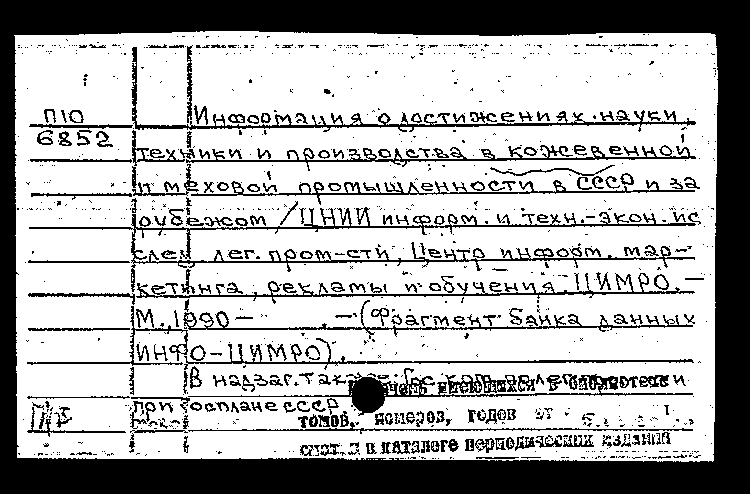 П10
6852
Информация о достижениях науки,
техники и производства в кожевенной
и меховой промышленности в СССР и за
рубежом / ЦНИИ информ. и техн.-экон. ис
след лег. пром-сти, Центр информ. мар-
кетинга, рекламы и обучения ЦИМРО. —
М., 1990 — . — (Фрагмент банка данных
ИНФО-ЦИМРО).
В надзаг. также: Гос. ком. по лег. и
имеющихся в библиотеке
при Госплане СССР
томов, номеров, годов
смот. в каталоге периодических изданий